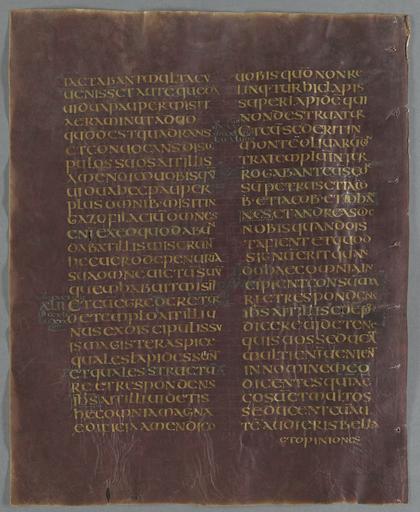 IACTABANTMULTACU
UENISSETAUTEQUEDA
UIDUAPAUPERMISIT
AERAMINUTADUO
QUODESTQUADRANS
ETCONUOCANSDISCI
PULOSSUOSAITILLIS
AMENDICOUOBISQM
UIDUAHECPAUPER
PLUSOMNIBMISITIN
GAZOFILACIUOMNES
ENIEXEOQUODABUN
DABATILLISMISERUN
HECUERODEPENURIA
SUAOMNEUICTUSUU
QUEHABUITMISIT
ETCUEGREDERETUR
DETEMPLOAITILLIU
NUSEXDISCIPULISSU
ISMAGISTERASPICE
QUALESLAPIDESSUNT
ETQUALESSTRUCTU
REETRESPONDENS
IHSAITILLIUIDETIS
HECOMNIAMAGNA
EDIFICIAAMENDICO
UOBISQMNONRE
LINQTURHICLAPIS
SUPERLAPIDEQUI
NONDESTRUATUR
ETCUSEDERITIN
MONTEOLIUARU
TRATEMPLUINTER
ROGABANTEUSEO
SUPETRUSETIACO
BETIACOBETIOHA
NESETANDREASDIC
NOBISQUANDOIS
TAFIENTETQUOD
SIGNUERITQUAN
DOHAECOMNIAIN
CIPIENTCONSUMA
RIETRESPONDENS
IHSAITILLISCEPIT
DICEREUIDETENE
QUISUOSSEDUCAT
MULTIENIUENIENT
INNOMINEMEO
DICENTESQUIAE
COSUETMULTOS
SEDUCENTCUAU
TEAUDIERISBELLA
ETOPINIONES